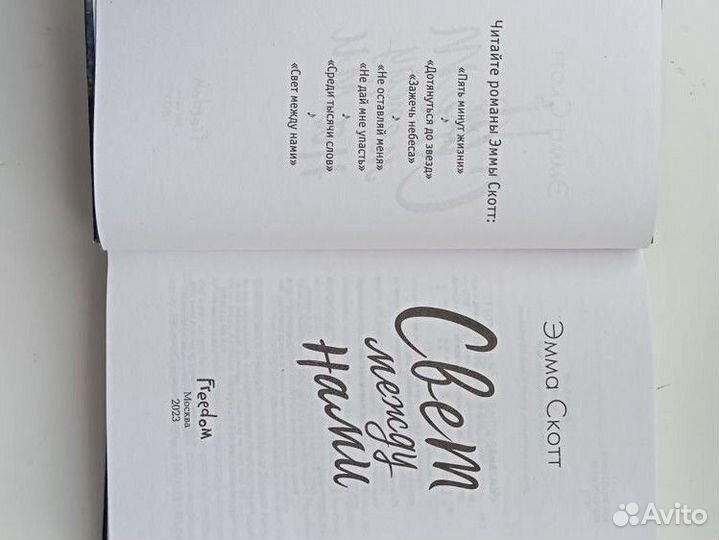 Читайте романы Эммы Скотт:
«Пять минут жизни»
♪
«Дотянуться до звезд»
«Зажечь небеса»
♪
«Не оставляй меня»
«Не дай мне упасть»
♪
«Среди тысячи слов»
♪
«Свет между нами»
Эмма Скотт
Свет
между
нами
Freedom
Москва
2023
Avito